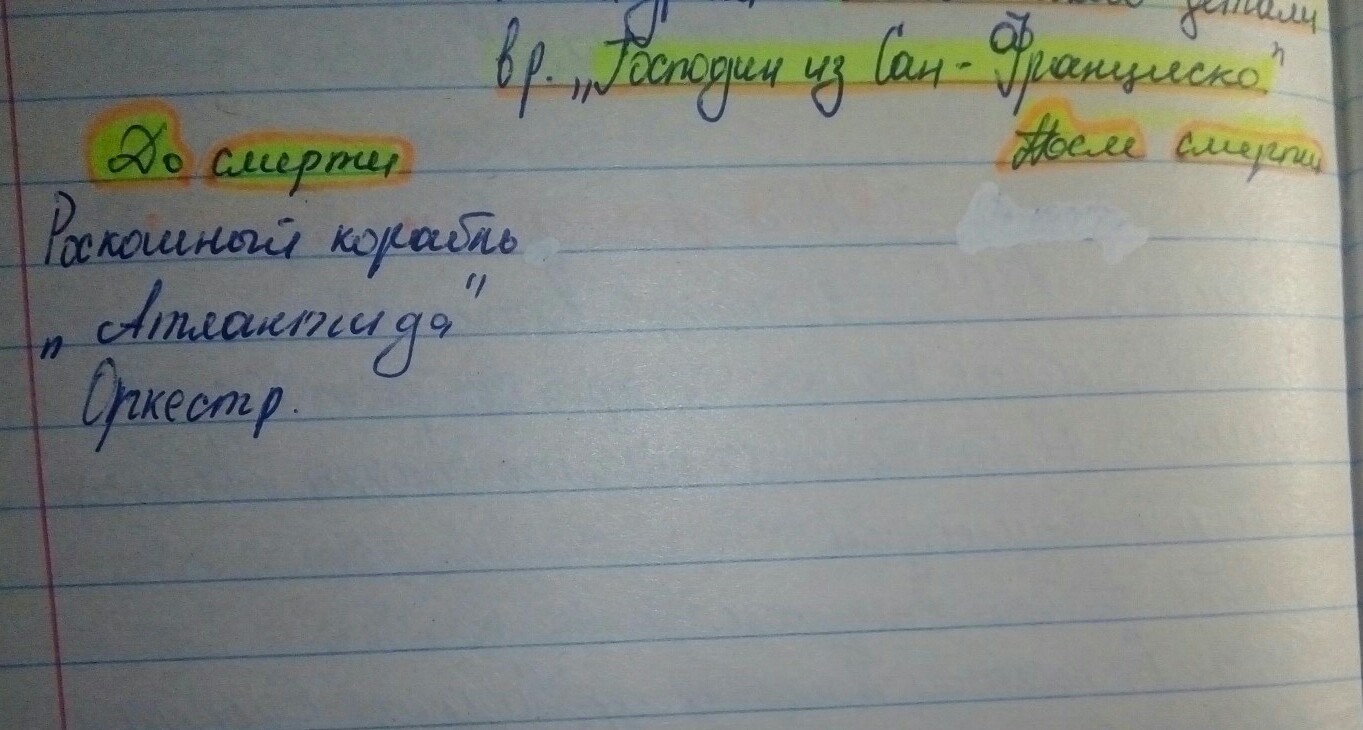 детали
в р. „Господин из Сан-Франциско"
До смерти После смерти
Роскошный корабль
„Атлантида"
Оркестр.